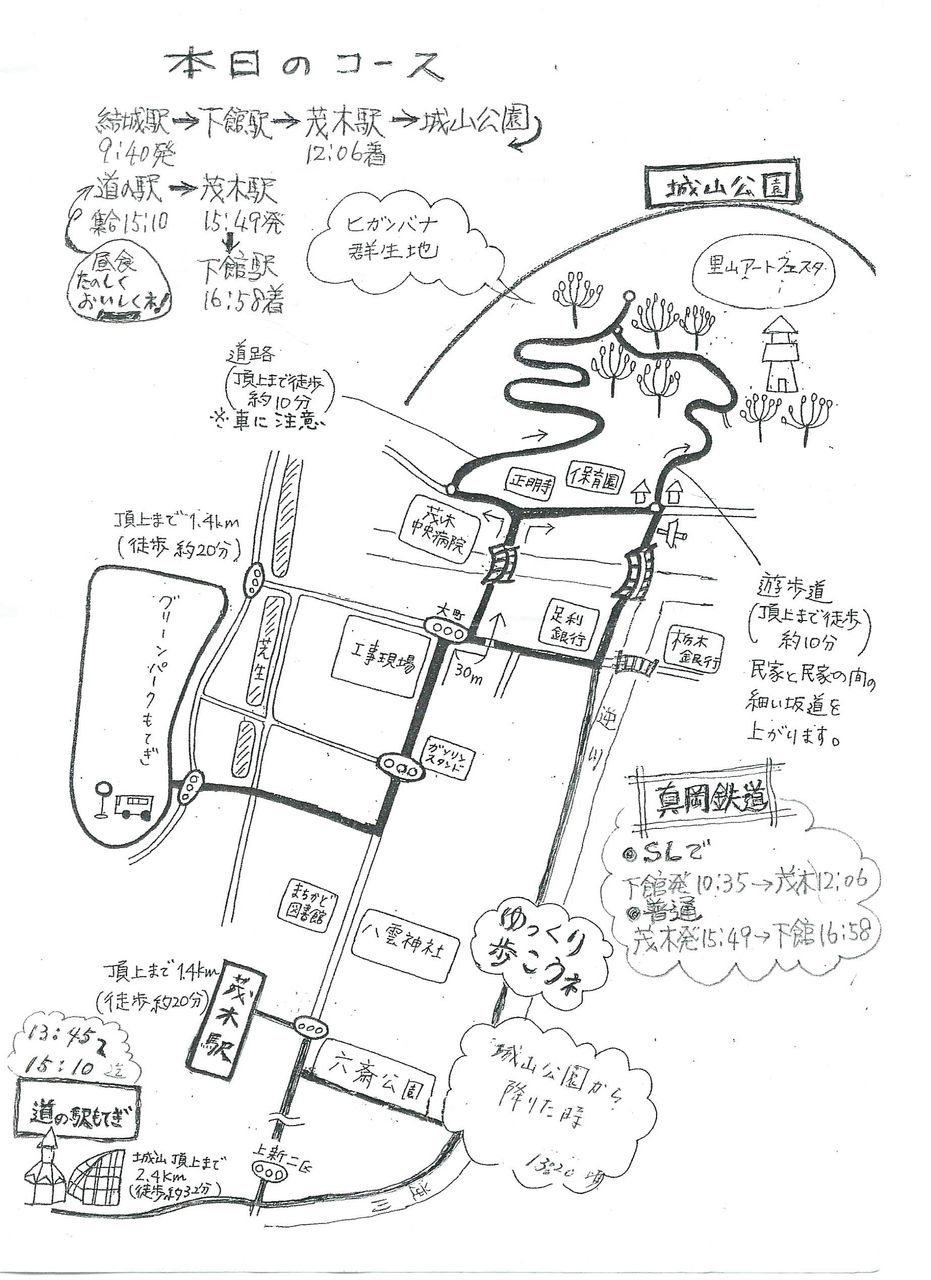 本日のコース
結城駅→下館駅→茂木駅→城山公園
9:40発
12:06着
道の駅→茂木駅
集合15:10
15:49発
下館駅
16:58着
昼食
たのしく
おいしくネ!
ヒガンバナ
群生地
城山公園
里山アートフェスタ
道路
(頂上まで徒歩
約10分)
※車に注意
正明寺
保育園
茂木
中央病院
頂上まで1.4km
(徒歩 約20分)
グリーンパークもてぎ
芝生
大町
工事現場
30m
足利
銀行
栃木
銀行
遊歩道
(頂上まで徒歩
約10分)
民家と民家の間の
細い坂道を
上がります。
逆川
ガソリン
スタンド
真岡鉄道
◎SLで
下館発10:35→茂木12:06
◎普通
茂木発15:49→下館16:58
まちかど
図書館
八雲神社
ゆっくり
歩こうネ
頂上まで1.4km
(徒歩 約20分)
茂木駅
六斎公園
城山公園から
降りた時
13:20頃
13:45~
15:10迄
道の駅もてぎ
城山 頂上まで
2.4km
(徒歩約32分)
上新二区